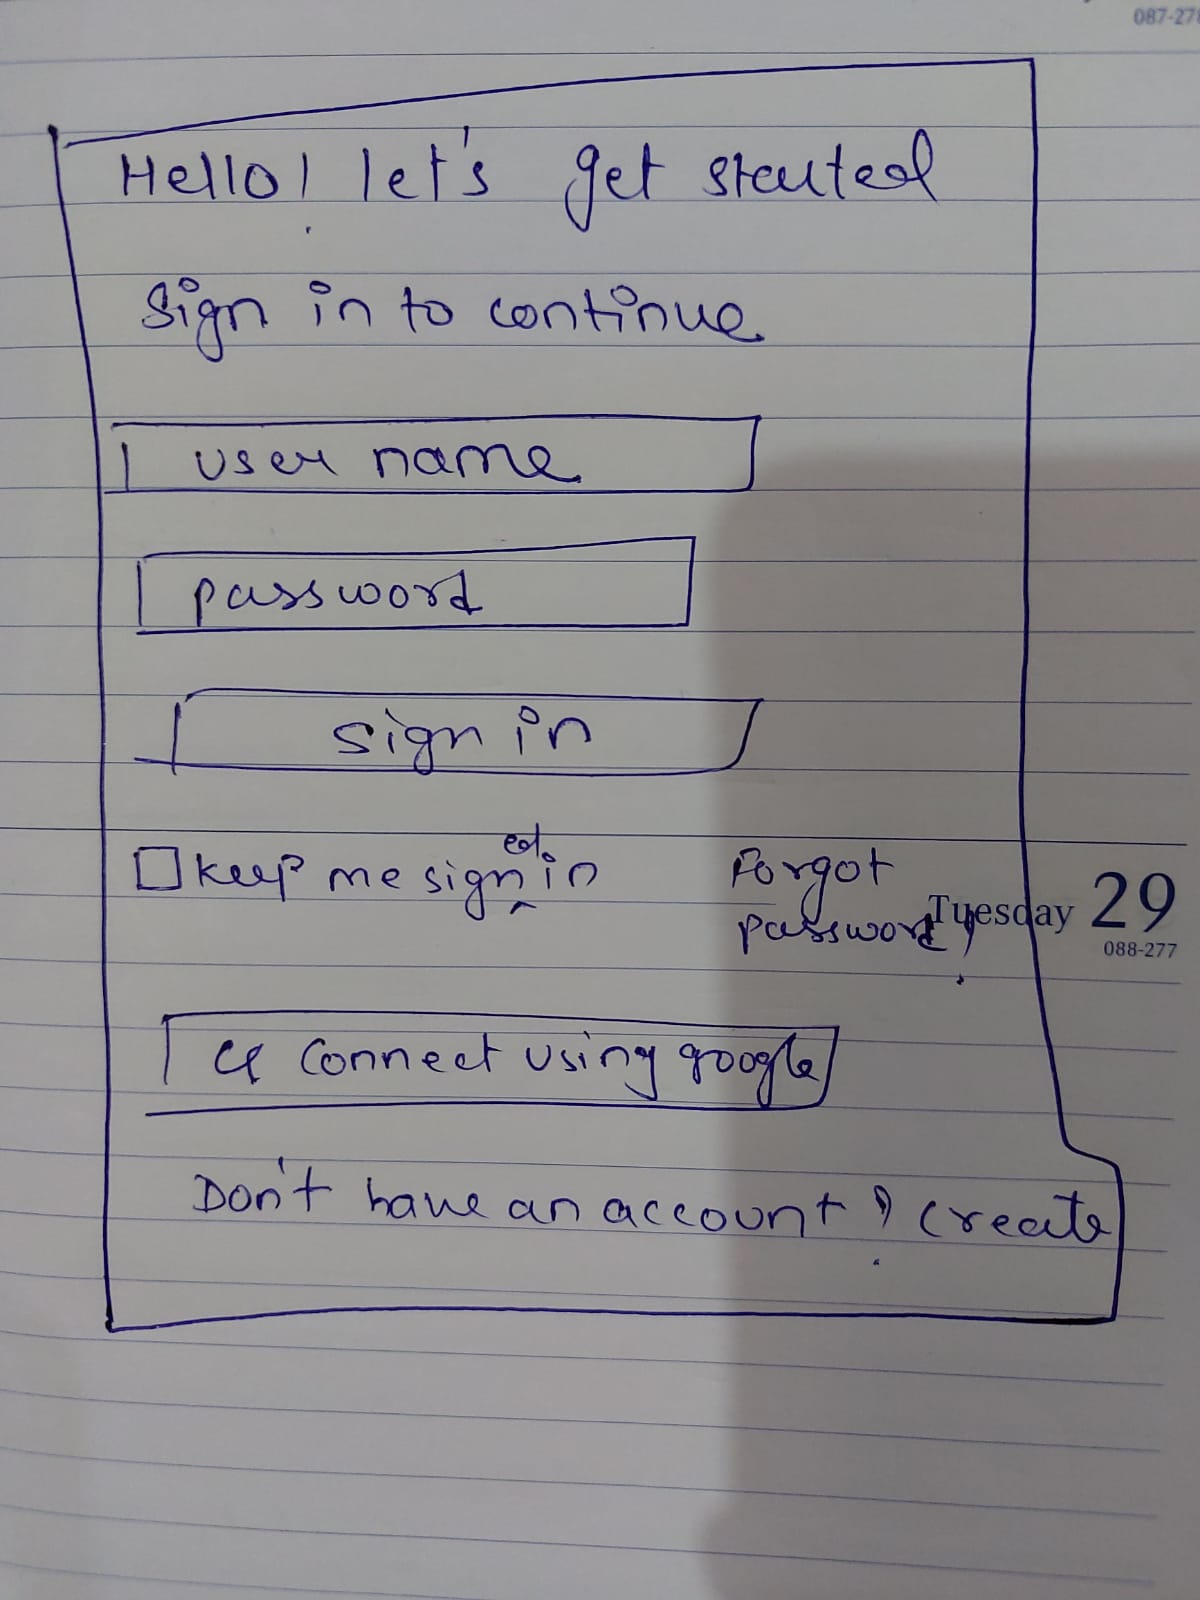 087-278
Hello! let's get started
Sign in to continue
user name
password
sign in
keep me signed in
Forgot
password?
Tuesday 29
088-277
G Connect using google
Don't have an account? create